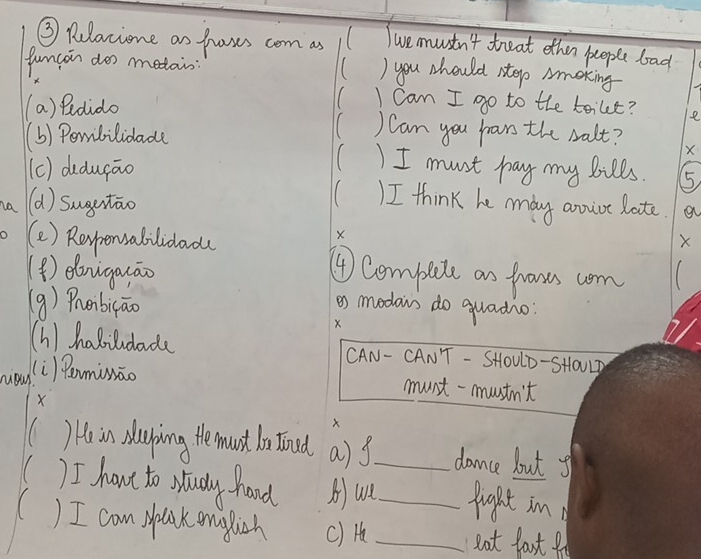 ③ Relacione as frases com as
função dos modais:
x
(a) Pedido
(b) Possibilidade
(c) dedução
(d) Sugestão
(e) Responsabilidade
(f) obrigação
(g) Proibição
(h) habilidade
(i) Permissão
x
( ) He is sleeping. He must be tired
( ) I have to study hard
( ) I can speak english
( ) we mustn't treat other people bad
( ) you should stop smoking
( ) Can I go to the toilet?
( ) Can you pass the salt?
( ) I must pay my bills.
( ) I think he may arrive late.
x
④ Complete as frases com
os modais do quadro:
x
CAN - CAN'T - SHOULD - SHOULD
must - mustn't
x
a) I ______ dance but I
b) we ______ fight in
c) He ______ eat fast
x
⑤
x
(